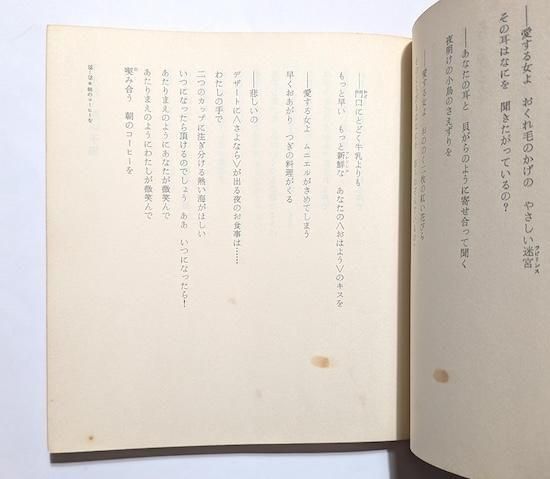 ――愛する女よ　おくれ毛のかげの　やさしい迷宮
その耳はなにを　聞きたがっているの？
――あなたの耳と　貝がらのように寄せ合って聞く
夜明けの小鳥のさえずりを
――愛する女よ
――門口にとどく牛乳よりも
もっと早い　もっと新鮮な　あなたの〈おはよう〉のキスを
――愛する女よ　ムニエルがさめてしまう
早くおあがり　つぎの料理がくる
――悲しいの
デザートに〈さよなら〉が出る夜のお食事は……
わたしの手で
二つのカップに注ぎ分ける熱い海がほしい
いつになったら頂けるのでしょう　ああ　いつになったら！
あたりまえのようにあなたが微笑んで
あたりまえのようにわたしが微笑んで
喫み合う　朝のコーヒーを
朝のコーヒーを